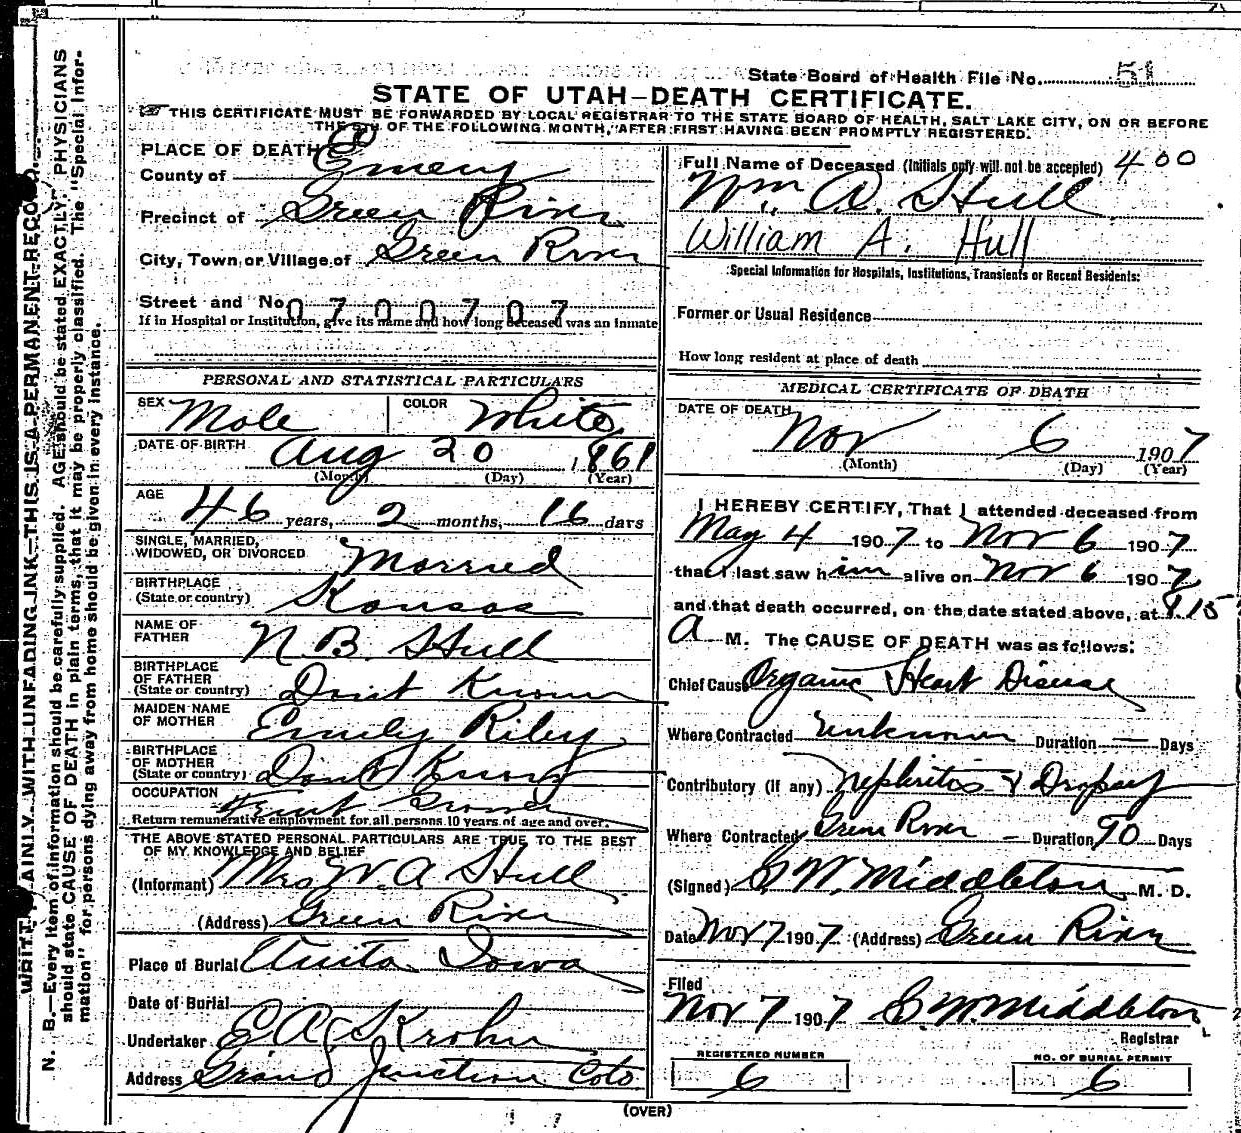 State Board of Health File No. 51
STATE OF UTAH—DEATH CERTIFICATE.
THIS CERTIFICATE MUST BE FORWARDED BY LOCAL REGISTRAR TO THE STATE BOARD OF HEALTH, SALT LAKE CITY, ON OR BEFORE
THE 5TH OF THE FOLLOWING MONTH, AFTER FIRST HAVING BEEN PROMPTLY REGISTERED.
PLACE OF DEATH
County of Emery
Precinct of Green River
City, Town or Village of Green River
Street and No. 0700707
If in Hospital or Institution, give its name and how long deceased was an inmate
PERSONAL AND STATISTICAL PARTICULARS
SEX Male COLOR White
DATE OF BIRTH Aug 20 1861
(Month) (Day) (Year)
AGE 46 years, 2 months, 16 days
SINGLE, MARRIED,
WIDOWED, OR DIVORCED Married
BIRTHPLACE
(State or country) Kansas
NAME OF
FATHER N. B. Hull
BIRTHPLACE
OF FATHER
(State or country) Dont Know
MAIDEN NAME
OF MOTHER Emily Riley
BIRTHPLACE
OF MOTHER
(State or country) Dont Know
OCCUPATION Fruit Grower
Return remunerative employment for all persons 10 years of age and over.
THE ABOVE STATED PERSONAL PARTICULARS ARE TRUE TO THE BEST
OF MY KNOWLEDGE AND BELIEF
(Informant) Mrs W. A Hull
(Address) Green River
Place of Burial Anita Iowa
Date of Burial
Undertaker E A Krohn
Address Grand Junction Colo
Full Name of Deceased (Initials only will not be accepted) 400
Wm. A. Hull
William A. Hull
Special Information for Hospitals, Institutions, Transients or Recent Residents:
Former or Usual Residence
How long resident at place of death
MEDICAL CERTIFICATE OF DEATH
DATE OF DEATH Nov 6 1907
(Month) (Day) (Year)
I HEREBY CERTIFY, That I attended deceased from
May 4 1907 to Nov 6 1907
that I last saw him alive on Nov 6 1907
and that death occurred, on the date stated above, at 8.15
A M. The CAUSE OF DEATH was as follows:
Chief Cause Organic Heart Disease
Where Contracted unknown Duration — Days
Contributory (if any) Nephritis & Dropsy
Where Contracted Green River — Duration 90 Days
(Signed) G. W. Middleton M. D.
Date Nov 7 1907 (Address) Green River
Filed
Nov 7 1907 G. W. Middleton
Registrar
REGISTERED NUMBER NO. OF BURIAL PERMIT
6 6
(OVER)
WRITE PLAINLY WITH UNFADING INK—THIS IS A PERMANENT RECORD.
N. B.—Every item of information should be carefully supplied. AGE should be stated EXACTLY. PHYSICIANS
should state CAUSE OF DEATH in plain terms, that it may be properly classified. The "Special Infor-
mation" for persons dying away from home should be given in every instance.